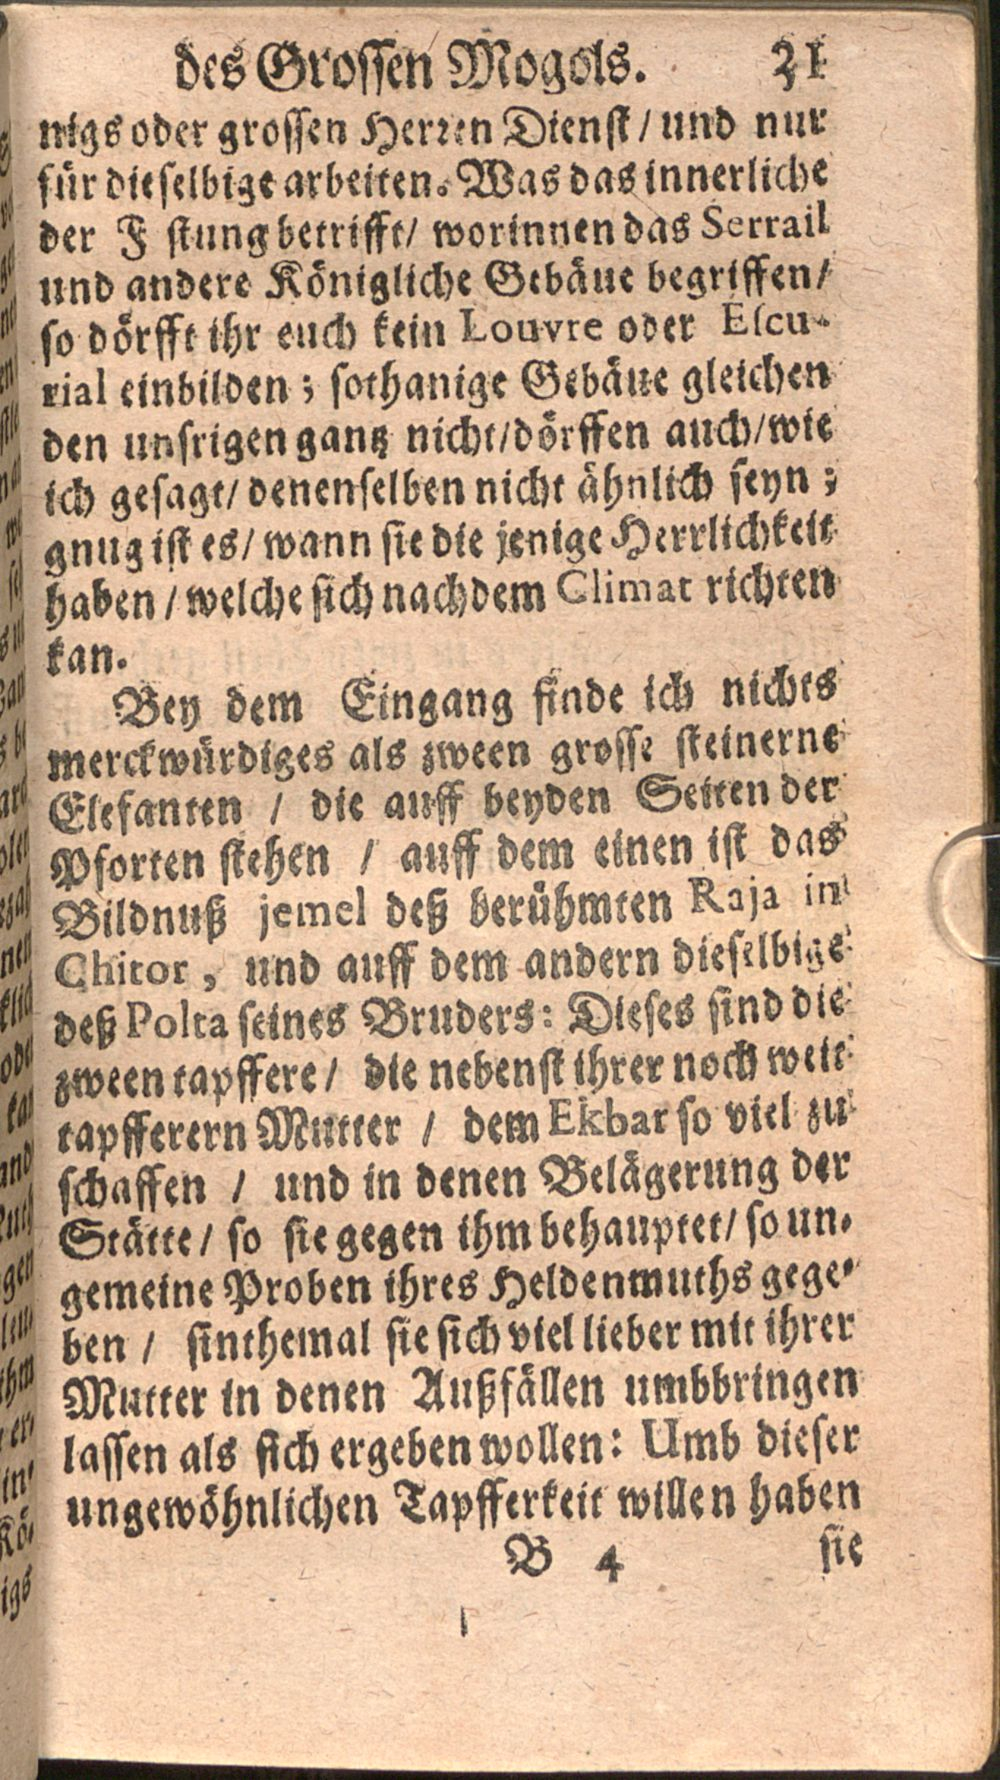 des Grossen Mogols. 21
nigs oder grossen Herren Dienst / und nur
für dieselbige arbeiten. Was das innerliche
der F stung betrifft / worinnen das Serrail
und andere Königliche Gebäue begriffen /
so dörfft ihr euch kein Louvre oder Escu-
rial einbilden ; sothanige Gebäue gleichen
den unsrigen gantz nicht / dörffen auch / wie
ich gesagt / denenselben nicht ähnlich seyn ;
gnug ist es / wann sie die jenige Herrlichkeit
haben / welche sich nach dem Climat richten
kan.
Bey dem Eingang finde ich nichts
merckwürdiges als zween grosse steinerne
Elefanten / die auff beyden Seiten der
Pforten stehen / auff dem einen ist das
Bildnuß jemel deß berühmten Raja in
Chitor, und auff dem andern dieselbige
deß Polta seines Bruders: Dieses sind die
zween tapffere / die nebenst ihrer noch weit
tapfferern Mutter / dem Ekbar so viel zu
schaffen / und in denen Belägerung der
Stätte / so sie gegen ihm behauptet / so un-
gemeine Proben ihres Heldenmuths gege-
ben / sinthemal sie sich viel lieber mit ihrer
Mutter in denen Außfällen umbbringen
lassen als sich ergeben wollen: Umb dieser
ungewöhnlichen Tapfferkeit willen haben
B 4 sie